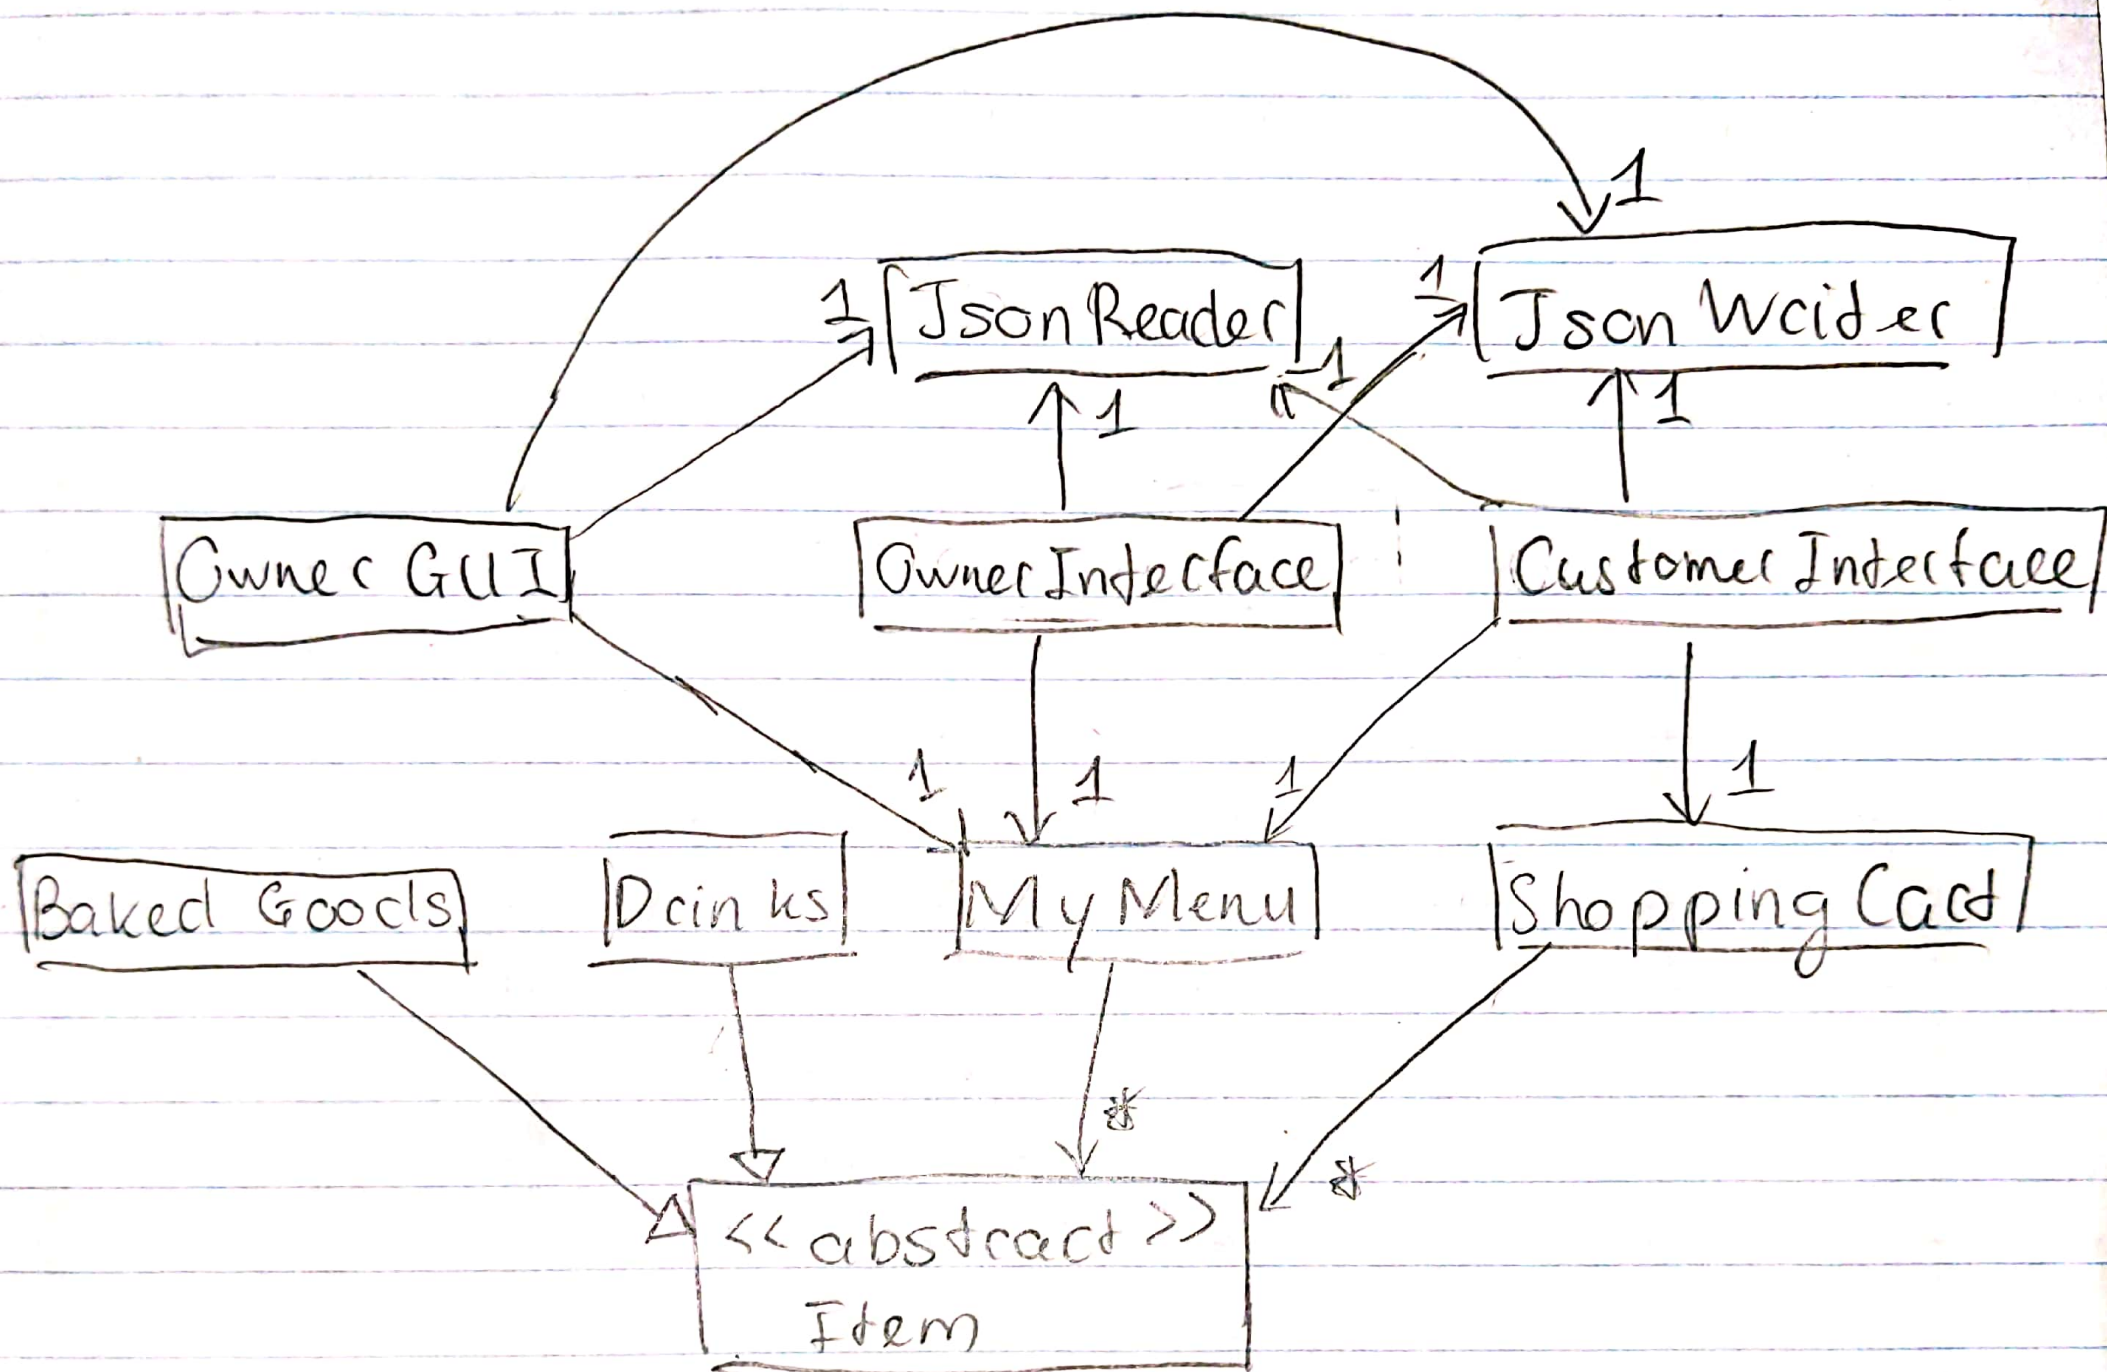 1
1 JsonReader
1 Json Writer
1
1
1
Owner GUI
OwnerInterface
CustomerInterface
1
1
1
1
Baked Goods
Drinks
MyMenu
Shopping Cart
*
*
<<abstract>>
Item